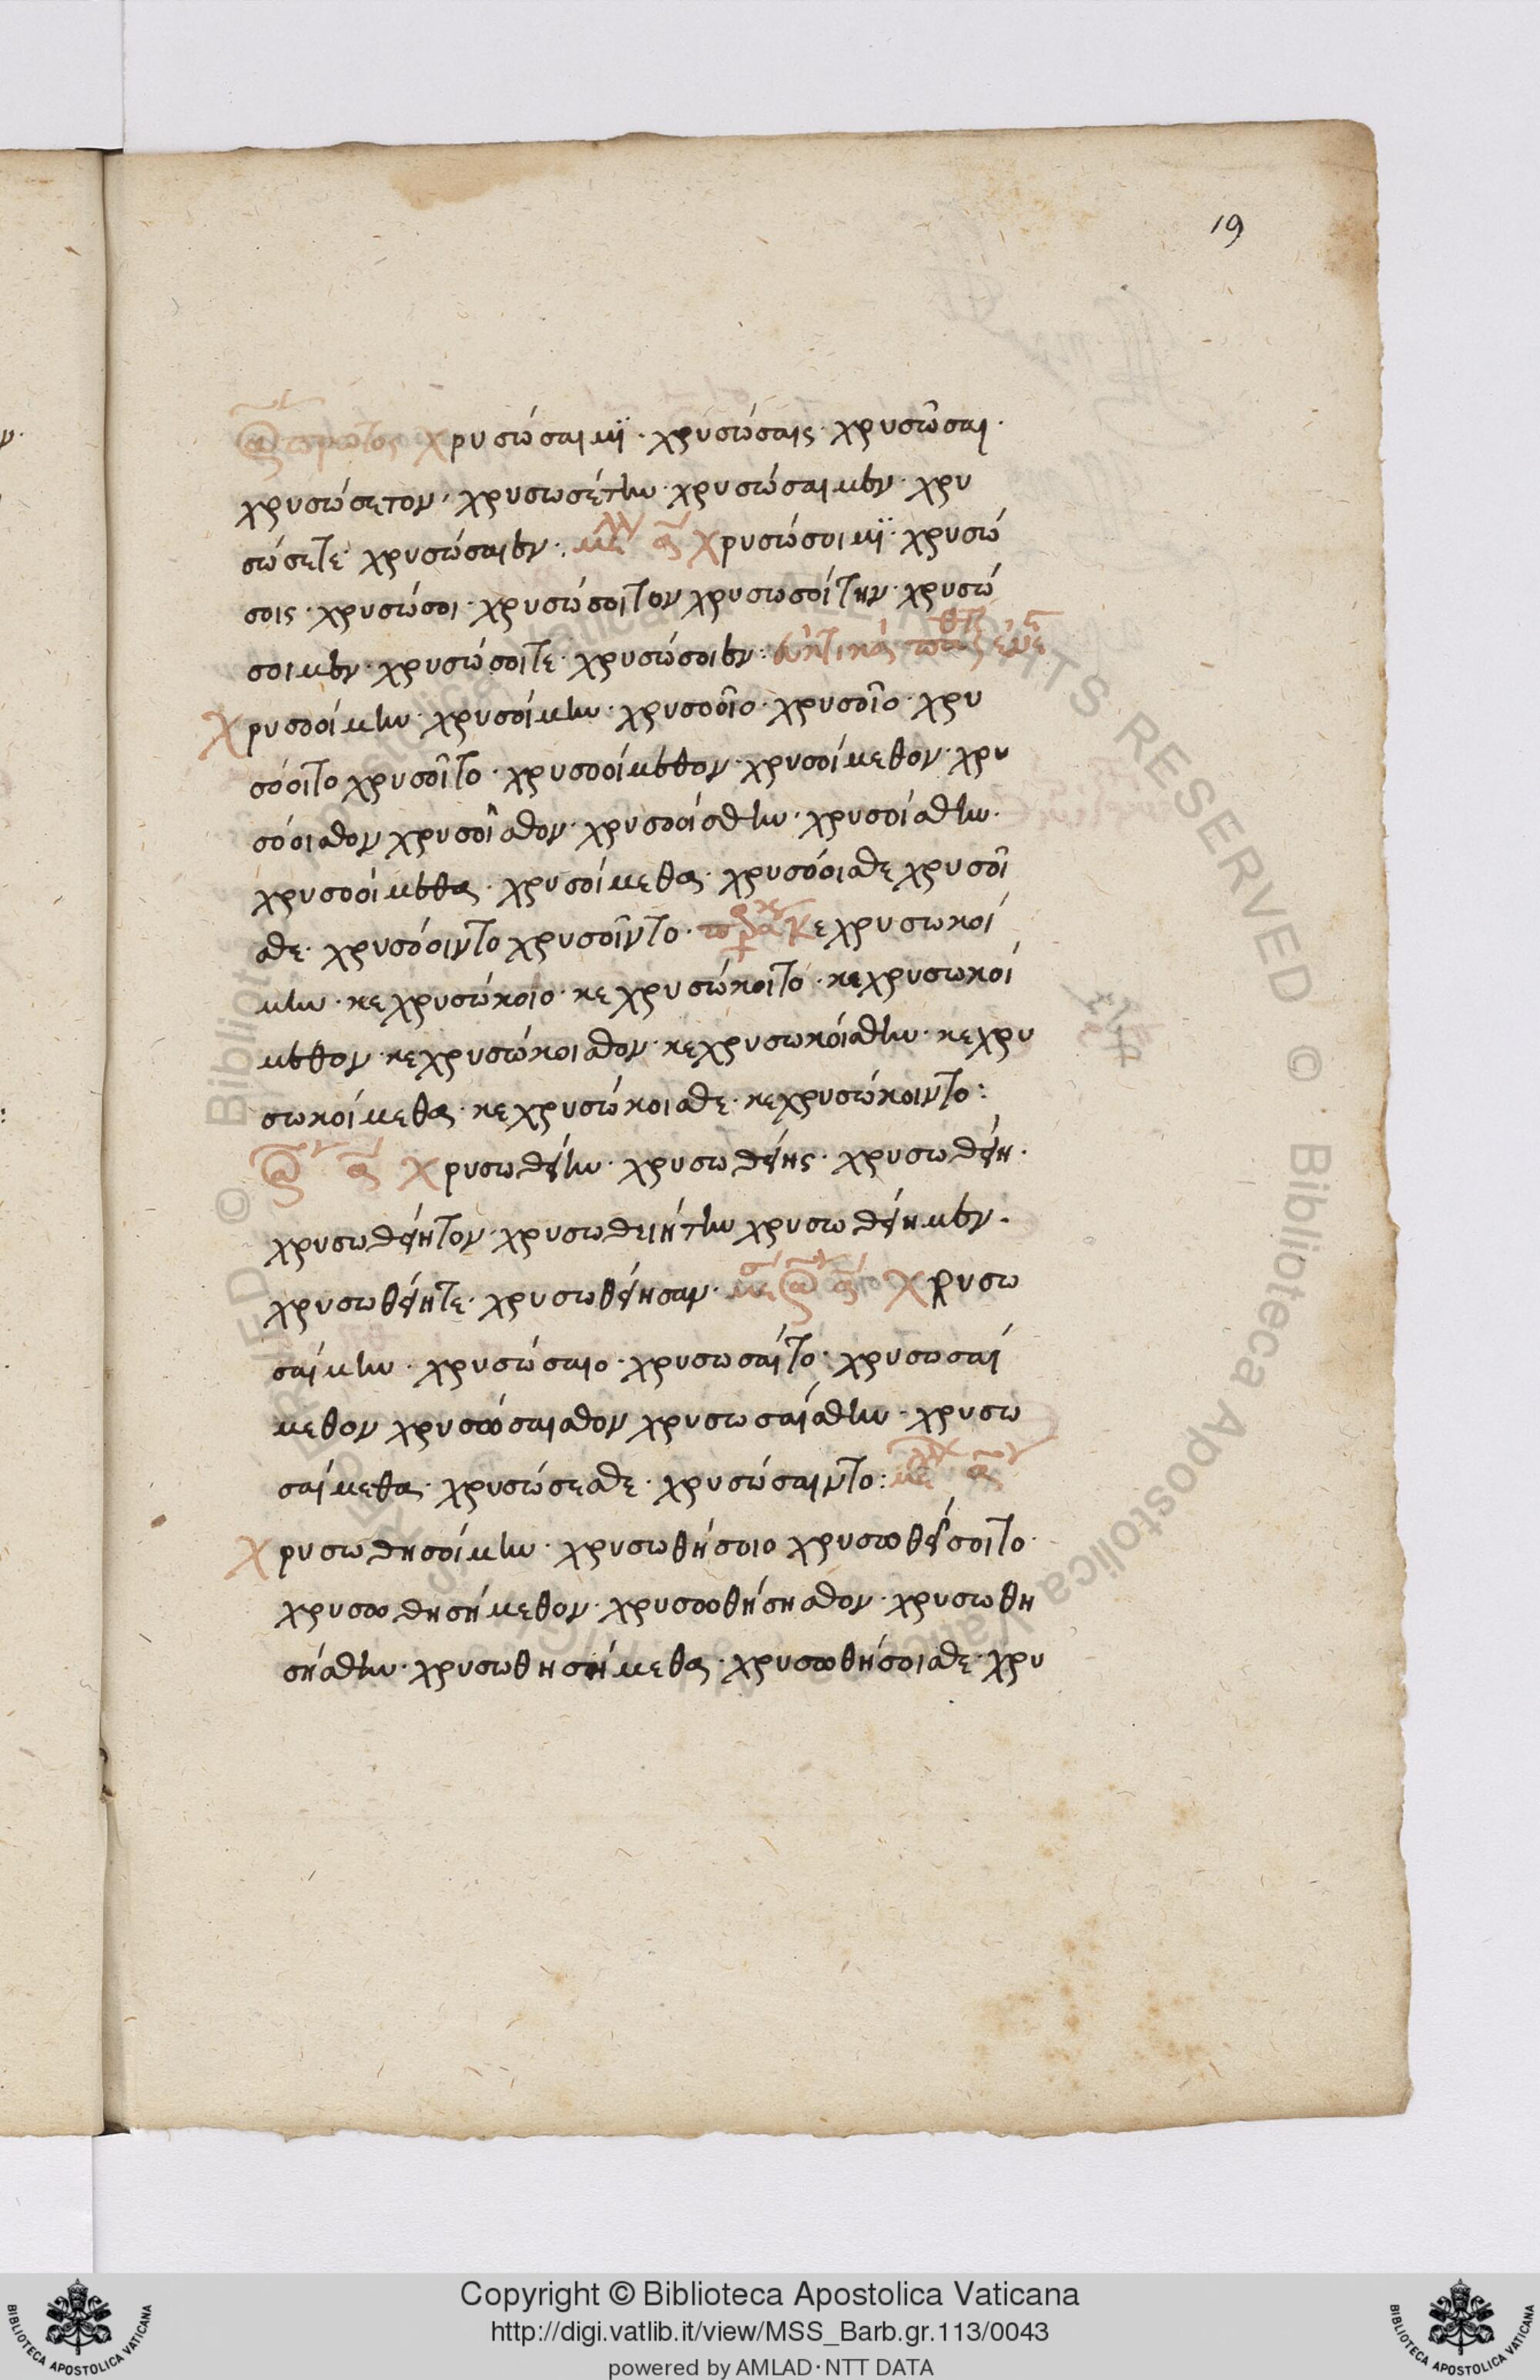 19
ἀόριστος πρῶτος χρυσώσαιμϊ· χρυσώσαις· χρυσῶσαι·
χρυσώσετον, χρυσωσέτην· χρυσώσαιμεν· χρυ
σώσετε· χρυσώσαιεν· μέλλ α Χρυσώσοιμϊ· χρυσώ
σοις· χρυσώσοι· χρυσώσοιτον χρυσωσοίτην· χρυσώ
σοιμεν· χρυσώσοιτε· χρυσώσοιεν:
Χρυσοοίμην· χρυσοίμην· χρυσοοῖο· χρυσοῖο· χρυ
σόοιτο χρυσοῖτο· χρυσοοίμεθον· χρυσοίμεθον· χρυ
σόοισθον χρυσοῖσθον· χρυσοοίσθην· χρυσοίσθην·
χρυσοοίμεθα· χρυσοίμεθα· χρυσόοισθε χρυσοῖ
σθε· χρυσόοιντο χρυσοῖντο· παρακ Κεχρυσωκοί
μην· κεχρυσώκοιο· κεχρυσώκοιτο· κεχρυσωκοί
μεθον· κεχρυσώκοισθον· κεχρυσωκοίσθην· κεχρυ
σωκοίμεθα· κεχρυσώκοισθε· κεχρυσώκοιντο:
α Χρυσωθείην· χρυσωθείης· χρυσωθείη·
χρυσωθείητον· χρυσωθειήτην χρυσωθείημεν·
χρυσωθείητε· χρυσωθείησαν· μεσ α Χρυσω
σαίμην· χρυσώσαιο· χρυσωσαίτο· χρυσωσαί
μεθον χρυσώσαισθον χρυσωσαίσθην· χρυσω
σαίμεθα· χρυσώσεσθε· χρυσώσαιντο: μέλλ α
Χρυσωθησοίμην· χρυσωθήσοιο χρυσωθείσοιτο·
χρυσωθησήμεθον· χρυσωθήσησθον· χρυσωθη
σήσθην· χρυσωθησήμεθα· χρυσωθήσοισθε· χρυ
Copyright © Biblioteca Apostolica Vaticana
http://digi.vatlib.it/view/MSS_Barb.gr.113/0043
powered by AMLAD·NTT DATA
BIBLIOTECA APOSTOLICA VATICANA
BIBLIOTECA APOSTOLICA VATICANA